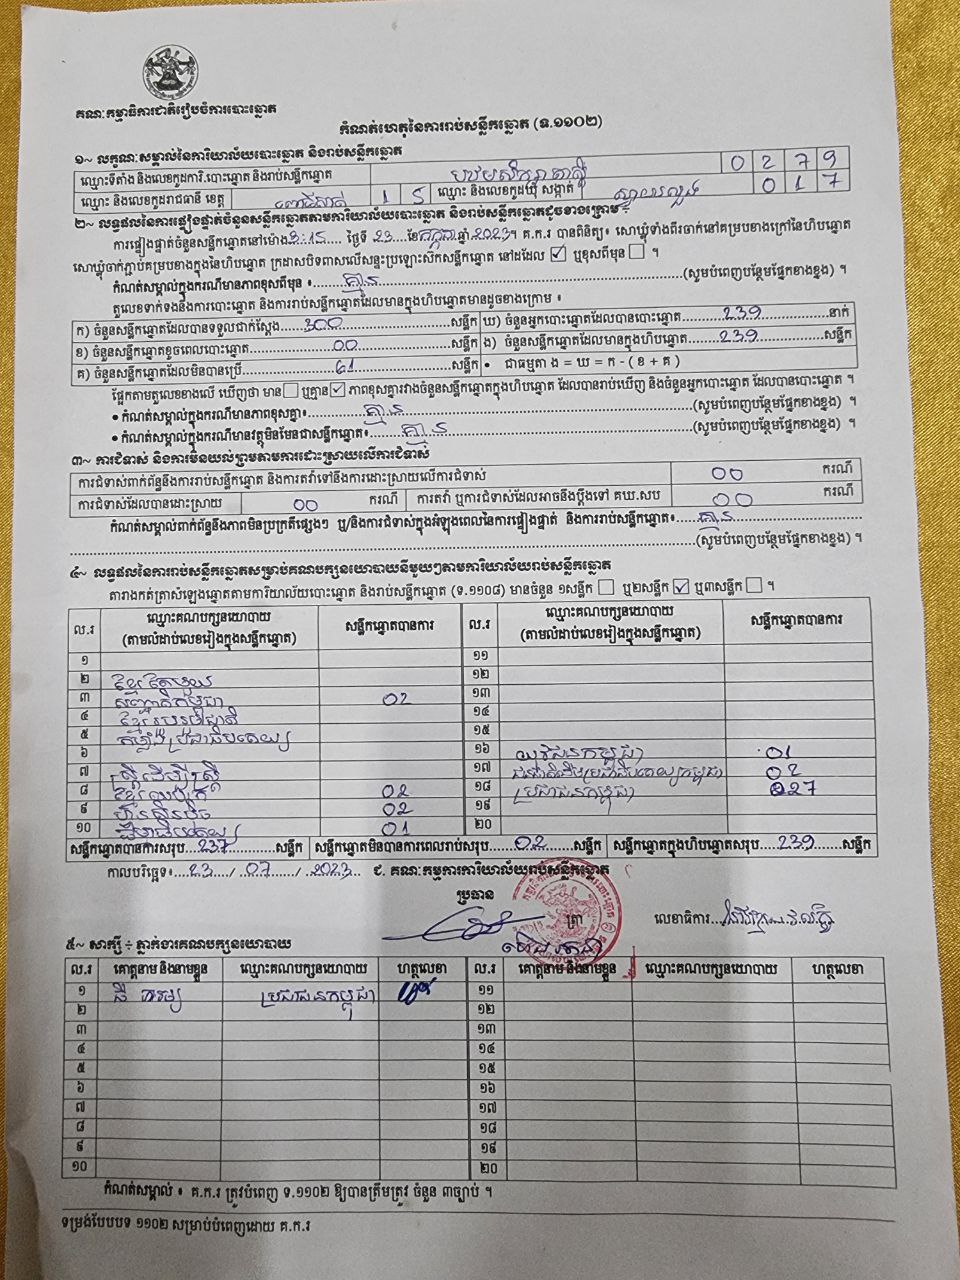 គណៈកម្មាធិការជាតិរៀបចំការបោះឆ្នោត
កំណត់ហេតុនៃការរាប់សន្លឹកឆ្នោត (ទ.១១០២)
១~ លក្ខណៈសម្គាល់នៃការិយាល័យបោះឆ្នោត និងរាប់សន្លឹកឆ្នោត
ឈ្មោះទីតាំង និងលេខកូដការិ.បោះឆ្នោត និងរាប់សន្លឹកឆ្នោត 0 2 7 9
ឈ្មោះ និងលេខកូដរាជធានី ខេត្ត ពោធិ៍សាត់ 1 5 ឈ្មោះ និងលេខកូដឃុំ សង្កាត់ ស្វាយលួង 0 1 7
២~ លទ្ធផលនៃការផ្ទៀងផ្ទាត់ចំនួនសន្លឹកឆ្នោតតាមការិយាល័យបោះឆ្នោត និងរាប់សន្លឹកឆ្នោតដូចខាងក្រោម ÷
ការផ្ទៀងផ្ទាត់ចំនួនសន្លឹកឆ្នោតនៅម៉ោង 3:15 ថ្ងៃទី 23 ខែ កក្កដា ឆ្នាំ 2023។ គ.ក.រ បានពិនិត្យ៖ សោឃ្លុំទាំងពីរចាក់នៅគម្របខាងក្រៅនៃហិបឆ្នោត
សោឃ្លុំចាក់ភ្ជាប់គម្របខាងក្នុងនៃហិបឆ្នោត ក្រដាសបិទពាសលើសន្ទះប្រឡោះសឹកសន្លឹកឆ្នោត នៅដដែល ☑ ឬខុសពីមុន ☐ ។
កំណត់សម្គាល់ក្នុងករណីមានភាពខុសពីមុន ៖ គ្មាន (សូមបំពេញបន្ថែមផ្នែកខាងខ្នង) ។
តួលេខទាក់ទងនឹងការបោះឆ្នោត និងការរាប់សន្លឹកឆ្នោតដែលមានក្នុងហិបឆ្នោតមានដូចខាងក្រោម ៖
ក) ចំនួនសន្លឹកឆ្នោតដែលបានទទួលជាក់ស្តែង 300 សន្លឹក ឃ) ចំនួនអ្នកបោះឆ្នោតដែលបានបោះឆ្នោត 239 នាក់
ខ) ចំនួនសន្លឹកឆ្នោតខូចពេលបោះឆ្នោត 00 សន្លឹក ង) ចំនួនសន្លឹកឆ្នោតដែលមានក្នុងហិបឆ្នោត 239 សន្លឹក
គ) ចំនួនសន្លឹកឆ្នោតដែលមិនបានប្រើ 61 សន្លឹក • ជាធម្មតា ង = ឃ = ក - ( ខ + គ )
ផ្អែកតាមតួលេខខាងលើ ឃើញថា មាន ☐ ឬគ្មាន ☑ ភាពខុសគ្នារវាងចំនួនសន្លឹកឆ្នោតក្នុងហិបឆ្នោត ដែលបានរាប់ឃើញ និងចំនួនអ្នកបោះឆ្នោត ដែលបានបោះឆ្នោត ។
• កំណត់សម្គាល់ក្នុងករណីមានភាពខុសគ្នា៖ គ្មាន (សូមបំពេញបន្ថែមផ្នែកខាងខ្នង) ។
• កំណត់សម្គាល់ក្នុងករណីមានវត្ថុមិនមែនជាសន្លឹកឆ្នោត៖ គ្មាន (សូមបំពេញបន្ថែមផ្នែកខាងខ្នង) ។
៣~ ការជំទាស់ និងការមិនយល់ព្រមតាមការដោះស្រាយលើការជំទាស់
ការជំទាស់ពាក់ព័ន្ធនឹងការរាប់សន្លឹកឆ្នោត និងការតវ៉ាទៅនឹងការដោះស្រាយលើការជំទាស់ 00 ករណី
ការជំទាស់ដែលបានដោះស្រាយ 00 ករណី ការតវ៉ា ឬការជំទាស់ដែលអាចនឹងប្តឹងទៅ គឃ.សប 00 ករណី
កំណត់សម្គាល់ពាក់ព័ន្ធនឹងភាពមិនប្រក្រតីផ្សេងៗ ឬ/និងការជំទាស់ក្នុងអំឡុងពេលនៃការផ្ទៀងផ្ទាត់ និងការរាប់សន្លឹកឆ្នោត៖ គ្មាន
(សូមបំពេញបន្ថែមផ្នែកខាងខ្នង) ។
៤~ លទ្ធផលនៃការរាប់សន្លឹកឆ្នោតសម្រាប់គណបក្សនយោបាយនីមួយៗតាមការិយាល័យរាប់សន្លឹកឆ្នោត
តារាងកត់ត្រាសំឡេងឆ្នោតតាមការិយាល័យបោះឆ្នោត និងរាប់សន្លឹកឆ្នោត (ទ.១១០៨) មានចំនួន ១សន្លឹក ☐ ឬ២សន្លឹក ☑ ឬ៣សន្លឹក ☐ ។
ល.រ ឈ្មោះគណបក្សនយោបាយ (តាមលំដាប់លេខរៀងក្នុងសន្លឹកឆ្នោត) សន្លឹកឆ្នោតបានការ ល.រ ឈ្មោះគណបក្សនយោបាយ (តាមលំដាប់លេខរៀងក្នុងសន្លឹកឆ្នោត) សន្លឹកឆ្នោតបានការ
១ ១១
២ ខ្មែរតែមួយ ១២
៣ សញ្ជាតិកម្ពុជា 02 ១៣
៤ ១៤
៥ កម្លាំងប្រជាធិបតេយ្យ ១៥
៦ ១៦ យុវជនកម្ពុជា 01
៧ ស្ត្រីដើម្បីស្ត្រី ១៧ ជនជាតិដើមប្រជាធិបតេយ្យកម្ពុជា 02
៨ 02 ១៨ ប្រជាជនកម្ពុជា 227
៩ ហ្វ៊ុនស៊ិនប៉ិច 02 ១៩
១០ 01 ២០
សន្លឹកឆ្នោតបានការសរុប 237 សន្លឹក សន្លឹកឆ្នោតមិនបានការពេលរាប់សរុប 02 សន្លឹក សន្លឹកឆ្នោតក្នុងហិបឆ្នោតសរុប 239 សន្លឹក
កាលបរិច្ឆេទ៖ 23 / 07 / 2023 ជ. គណៈកម្មការការិយាល័យរាប់សន្លឹកឆ្នោត
ប្រធាន ត្រា លេខាធិការ
៥~ សាក្សី ÷ ភ្នាក់ងារគណបក្សនយោបាយ
ល.រ គោត្តនាម និងនាមខ្លួន ឈ្មោះគណបក្សនយោបាយ ហត្ថលេខា ល.រ គោត្តនាម និងនាមខ្លួន ឈ្មោះគណបក្សនយោបាយ ហត្ថលេខា
១ ប្រជាជនកម្ពុជា ១១
២ ១២
៣ ១៣
៤ ១៤
៥ ១៥
៦ ១៦
៧ ១៧
៨ ១៨
៩ ១៩
១០ ២០
កំណត់សម្គាល់ ៖ គ.ក.រ ត្រូវបំពេញ ទ.១១០២ ឱ្យបានត្រឹមត្រូវ ចំនួន ៣ច្បាប់ ។
ទម្រង់បែបបទ ១១០២ សម្រាប់បំពេញដោយ គ.ក.រ